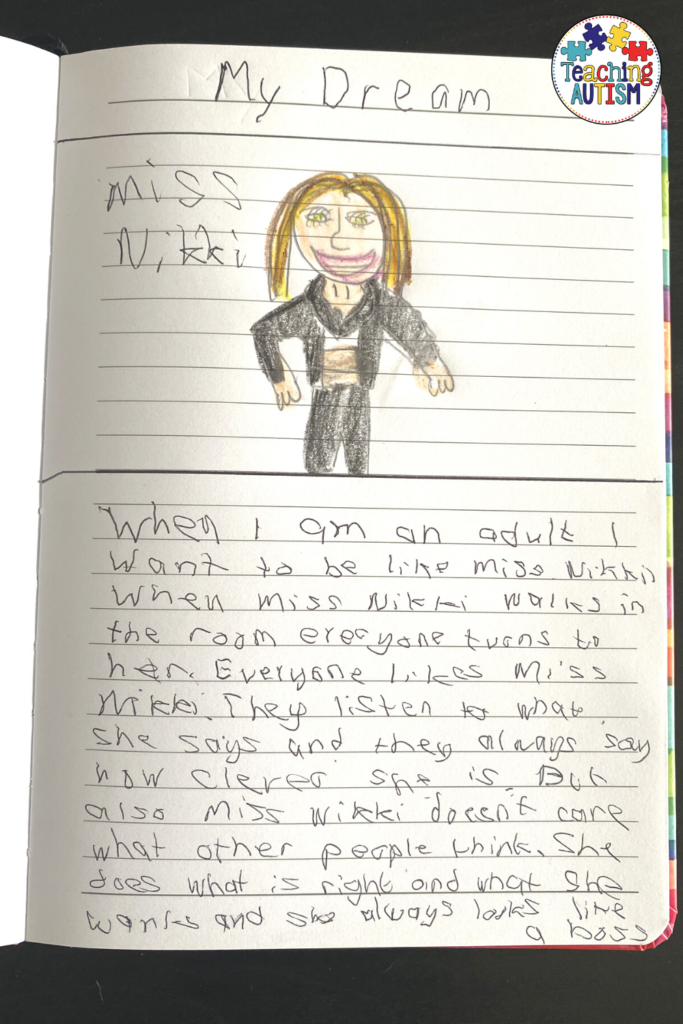 Teaching
AUTISM
My Dream
Miss
Nikki
When I am an adult I
want to be like miss Nikki
when miss Nikki walks in
the room ereryone turns to
her. Everyone likes Miss
Nikki. They listen to what
she says and they always say
how clerer she is. But
also miss Nikki doesn't care
what other people think. She
does what is right and what She
wants and she always looks like
a boss